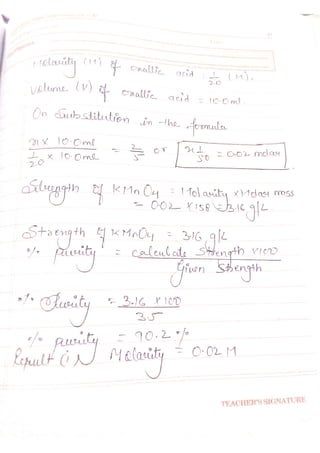 Molarity (M) of oxallic acid : 1/20 (M).
Volume (V) of oxallic acid = 10.0ml
On Substitution in the formula
x 10.0ml / 1/20 x 10.0ml = 2/5 or = 1/50 = 0.02 molar
Strength of KMnO4 = Molarity x Molar mass
= 0.02 x 158 = 3.16 g/L
Strength of KMnO4 = 3.16 g/L
% purity = calculate Strength x 100 / Given Strength
% Purity = 3.16 x 100 / 3.5
% purity = 90.2 %
Result (i) Molarity = 0.02 M
TEACHER'S SIGNATURE